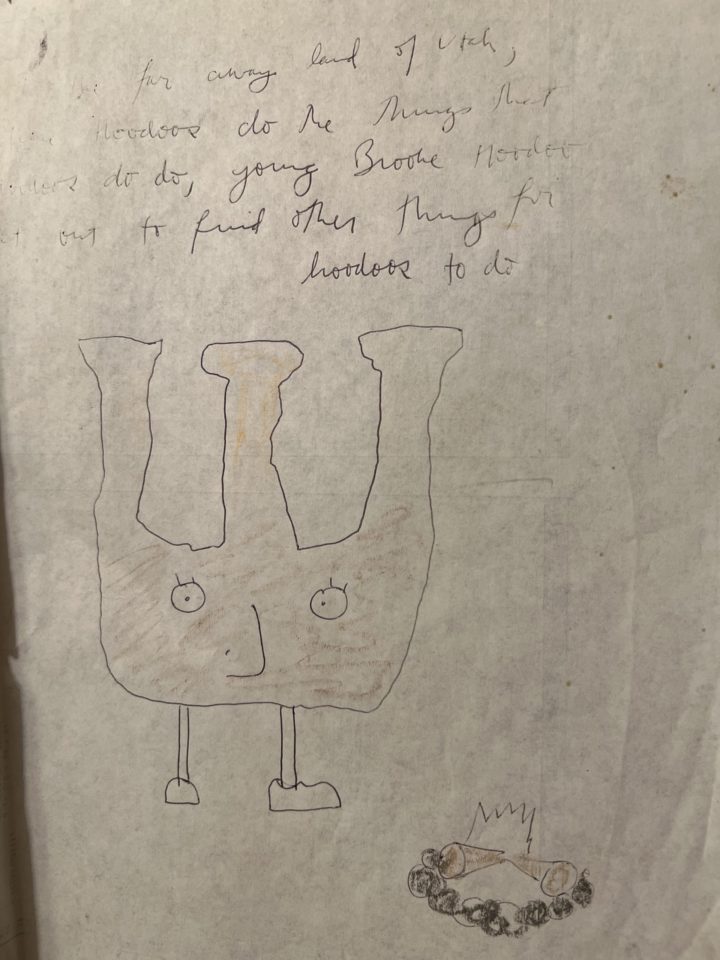 far away land of Utah,
Hoodoos do the things that
do do, young Brooke Hoodoo
out to find other things for
hoodoos to do